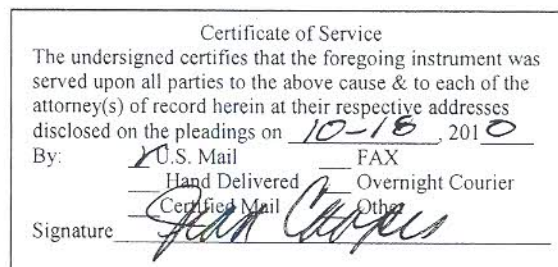 Certificate of Service
The undersigned certifies that the foregoing instrument was
served upon all parties to the above cause & to each of the
attorney(s) of record herein at their respective addresses
disclosed on the pleadings on 10-18, 2010
By: ✓ U.S. Mail ___ FAX
___ Hand Delivered ___ Overnight Courier
___ Certified Mail ___ Other
Signature Jean